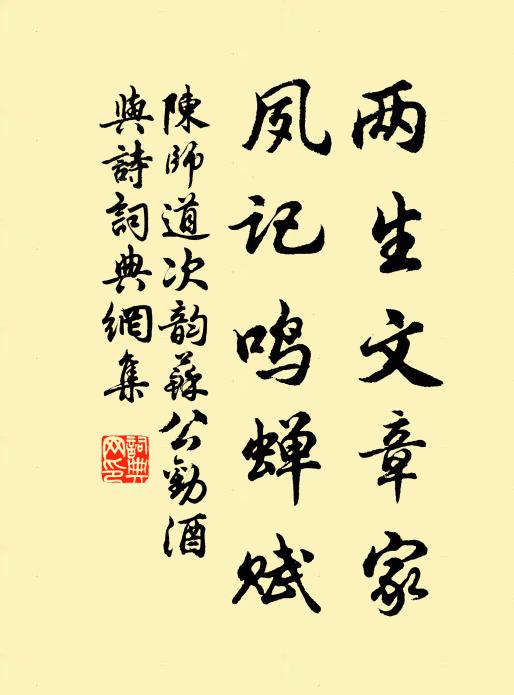 两生文章家
夙记鸣蝉赋
陳師道次韵蘇公勸酒
與詩詞典網集
詞典网印